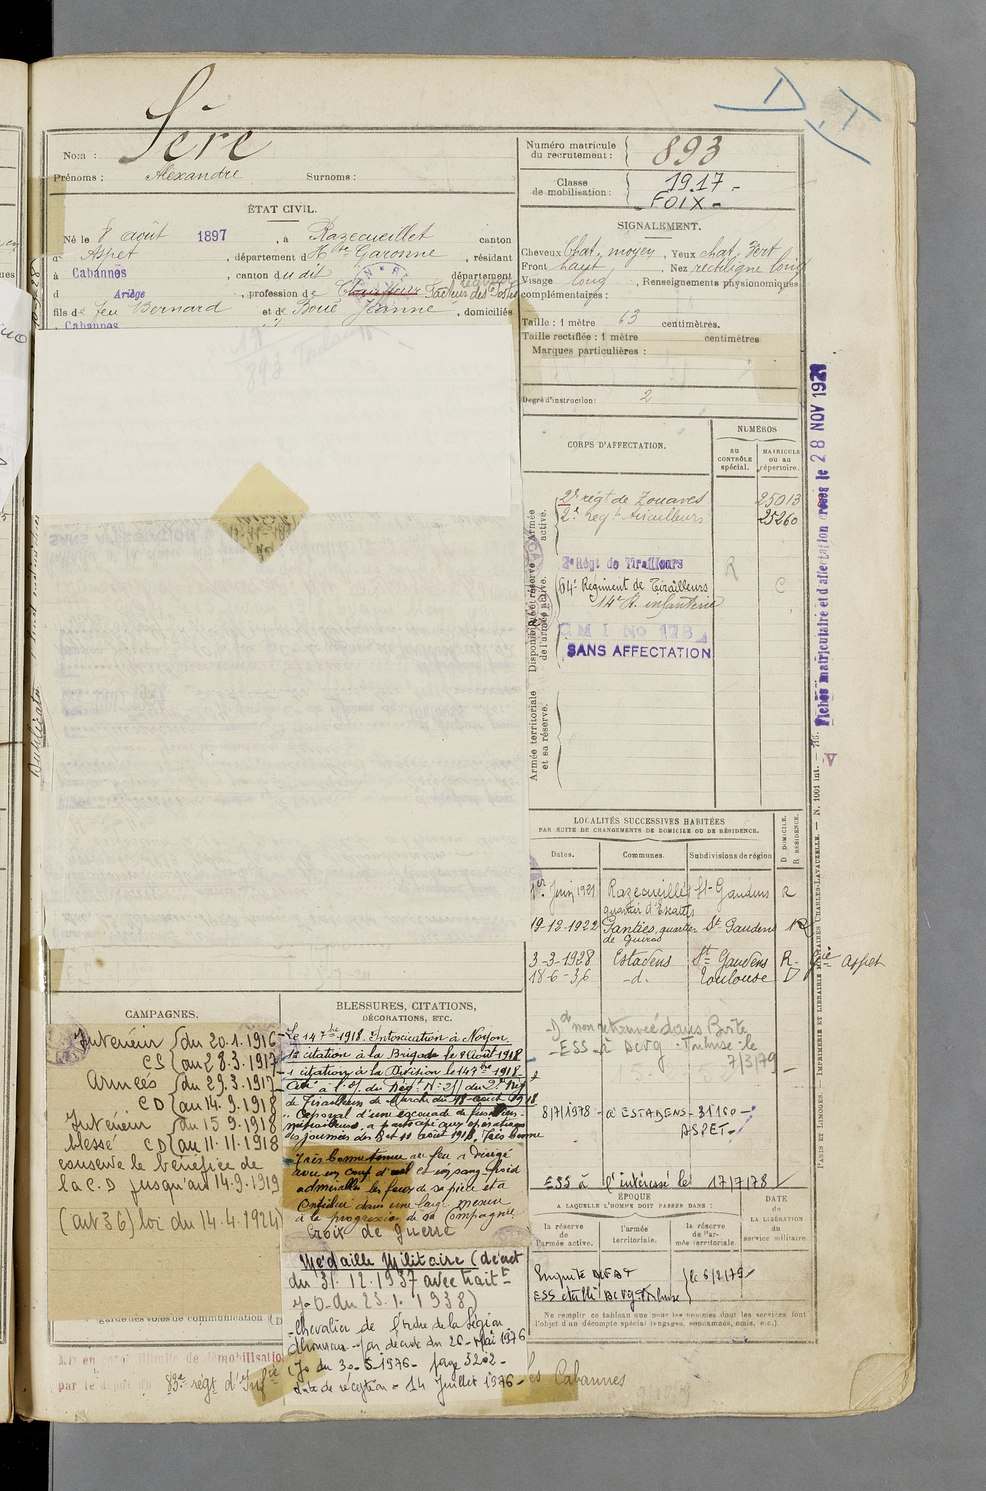 D.T
Nom : Sère
Prénoms : Alexandre Surnoms :
Numéro matricule du recrutement : 893
Classe de mobilisation : 1917 -
FOIX -
ÉTAT CIVIL.
Né le 8 août 1897, à Razecueillet canton
d' Aspet, département d Hte Garonne, résidant
à Cabannes, canton du dit département
d Ariège, profession de Facteur des Postes
fils de feu Bernard et de Boué Jeanne, domiciliés
Cabannes
SIGNALEMENT.
Cheveux Chat. moyen, Yeux chat. vert
Front haut, Nez rectiligne long
Visage long, Renseignements physionomiques
complémentaires :
Taille : 1 mètre 63 centimètres.
Taille rectifiée : 1 mètre centimètres
Marques particulières :
Degré d'instruction : 2
CORPS D'AFFECTATION.
NUMÉROS
AU CONTRÔLE spécial.
MATRICULE OU AU répertoire.
Armée active.
2e régt de Zouaves 25013
2e Régt Tirailleurs 25260
Disponibilité et réserve de l'armée active.
2e Régt de Tirailleurs R
64e Régiment de Tirailleurs C
14e R. infanterie
G M I No 178
SANS AFFECTATION
Armée territoriale et sa réserve.
Fiches matriculaire et d'affectation créées le 28 NOV 1921
PARIS ET LIMOGES. — IMPRIMERIE ET LIBRAIRIE MILITAIRES CHARLES-LAVAUZELLE. — N. 1001 int.
LOCALITÉS SUCCESSIVES HABITÉES
PAR SUITE DE CHANGEMENTS DE DOMICILE OU DE RÉSIDENCE.
Dates. Communes. Subdivisions de région D DOMICILE. R RÉSIDENCE.
1er Juin 1921 Razecueillé St-Gaudens R
quartier d'Escaits
19-12-1922 Ganties, quartier St Gaudens R
de Guirao
3-3-1928 Estadens St Gaudens R - Gie Aspet
18-6-36 -d- Toulouse D
-Dt non retrouvé dans Boite
- ESS - à DCVG - Toulouse - le
7/3/79
8/7/1978 - à ESTADENS - 31160 -
ASPET -
ESS à l'intéressé le 17/7/78
ÉPOQUE
A LAQUELLE L'HOMME DOIT PASSER DANS :
la réserve de l'armée active.
l'armée territoriale.
la réserve de l'armée territoriale.
DATE de LA LIBÉRATION du service militaire.
Enquête DCFAT } le 6/2/79 -
ESS établi DCVG Toulouse
Ne remplir ce tableau que pour les hommes dont les services font
l'objet d'un décompte spécial (engagés, condamnés, omis, etc.).
CAMPAGNES.
Intérieur { du 20.1.1916 -
CS { au 28.3.1917 -
Armées { du 29.3.1917 -
CD { au 14.9.1918
Intérieur { du 15.9.1918
blessé CD { au 11.11.1918
conserve le bénéfice de
la C.D jusqu'au 14.9.1919
(art 36) loi du 14.4.1924)
garde des voies de communication
Mis en congé illimité de démobilisation
par le dépôt du 83e régt d'Infie
les Cabannes
BLESSURES, CITATIONS,
DÉCORATIONS, ETC.
Le 14 7bre 1918. Intoxication à Noyon.
1e citation à la Brigade le 8 Août 1918
1 citation à la Division le 14 7bre 1918 -
Cité à l'O. du Régt N° 211 du 2e Régt
de Tirailleurs de Marche du 18 août 1918
" Caporal d'une escouade de fusiliers-
mitrailleurs, a participé aux opérations
des journées des 8 et 10 août 1918. Très bonne
Très bonne tenue au feu a dirigé
avec un coup d'oeil et un sang-froid
admirables les feux de sa pièce et a
contribué dans une large mesure
à la progression de sa Compagnie.
Croix de Guerre
Médaille Militaire (décret
du 31.12.1937 avec traitt
J.O. du 23.1.1938)
-Chevalier de l'Ordre de la Légion
d'honneur - par décret du 26 - Mai 1976
(Jo du 30-5-1976 - page 3202 -
date de réception = 14 Juillet 1976 -